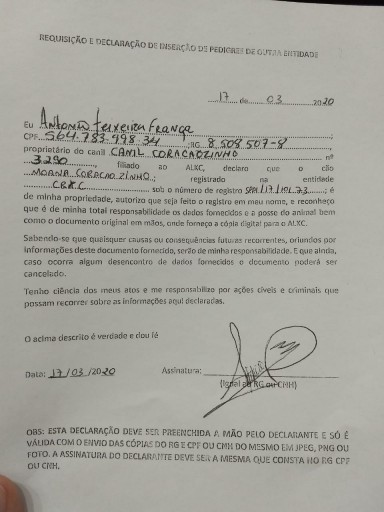 REQUISIÇÃO E DECLARAÇÃO DE INSERÇÃO DE PEDIGREE DE OUTRA ENTIDADE
17 de 03 2020
Eu Antonia Teixeira França
CPF 564.783.498.34 ;RG 8 508 507-8
proprietário do canil CANIL CORACAOZINHO nº
3290, filiado ao ALKC, declaro que o cão
MOANA CORACAO ZINHO; registrado na entidade
CBKC sob o número de registro ; é
de minha propriedade, autorizo que seja feito o registro em meu nome, e reconheço
que é de minha total responsabilidade os dados fornecidos e a posse do animal bem
como o documento original em mãos, onde forneço a cópia digital para o ALKC.
Sabendo-se que quaisquer causas ou consequências futuras recorrentes, oriundos por
informações deste documento fornecido, serão de minha responsabilidade. E que ainda,
caso ocorra algum desencontro de dados fornecidos o documento poderá ser
cancelado.
Tenho ciência dos meus atos e me responsabilizo por ações cíveis e criminais que
possam recorrer sobre as informações aqui declaradas.
O acima descrito é verdade e dou fé
Data: 17/03/2020 Assinatura:
(Igual ao RG ou CNH)
OBS: ESTA DECLARAÇÃO DEVE SER PREENCHIDA A MÃO PELO DECLARANTE E SÓ É
VÁLIDA COM O ENVIO DAS CÓPIAS DO RG E CPF OU CNH DO MESMO EM JPEG, PNG OU
FOTO. A ASSINATURA DO DECLARANTE DEVE SER A MESMA QUE CONSTA NO RG CPF
OU CNH.